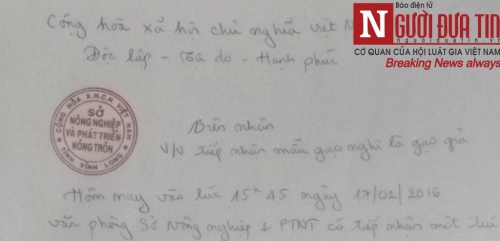 Báo điện tử
NGƯỜI ĐƯA TIN
nguoiduatin.vn
CƠ QUAN CỦA HỘI LUẬT GIA VIỆT NAM
Breaking News always
Cộng hòa xã hội chủ nghĩa việt
Độc lập - Tự do - Hạnh phúc
CỘNG HÒA X.H.C.N VIỆT NAM
SỞ
NÔNG NGHIỆP
VÀ PHÁT TRIỂN
NÔNG THÔN
TỈNH VĨNH LONG
Biên nhận
V/v tiếp nhận mẫu gạo nghi là gạo giả
Hôm nay vào lúc 15h45 ngày 17/02/2016
văn phòng Sở Nông nghiệp & PTNT có tiếp nhận một